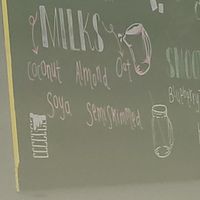 MILKS
Coconut Almond Oat
Soya Semiskimmed
Blueberry